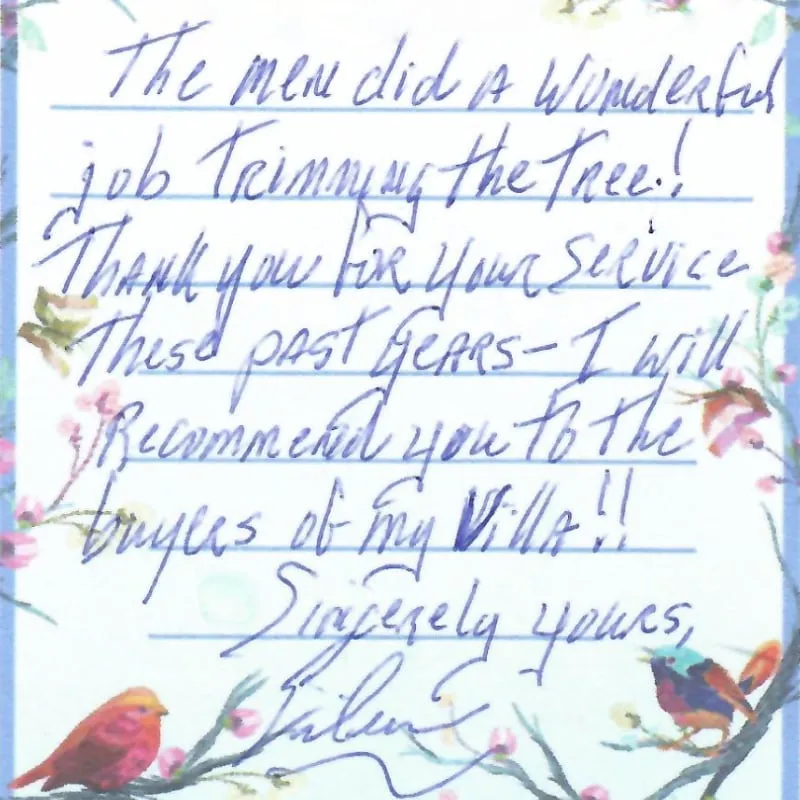 The men did A Wonderful
job Trimming the Tree!
Thank you for your service
These past years – I will
Recommend you to the
buyers of my Villa!!
Sincerely yours,